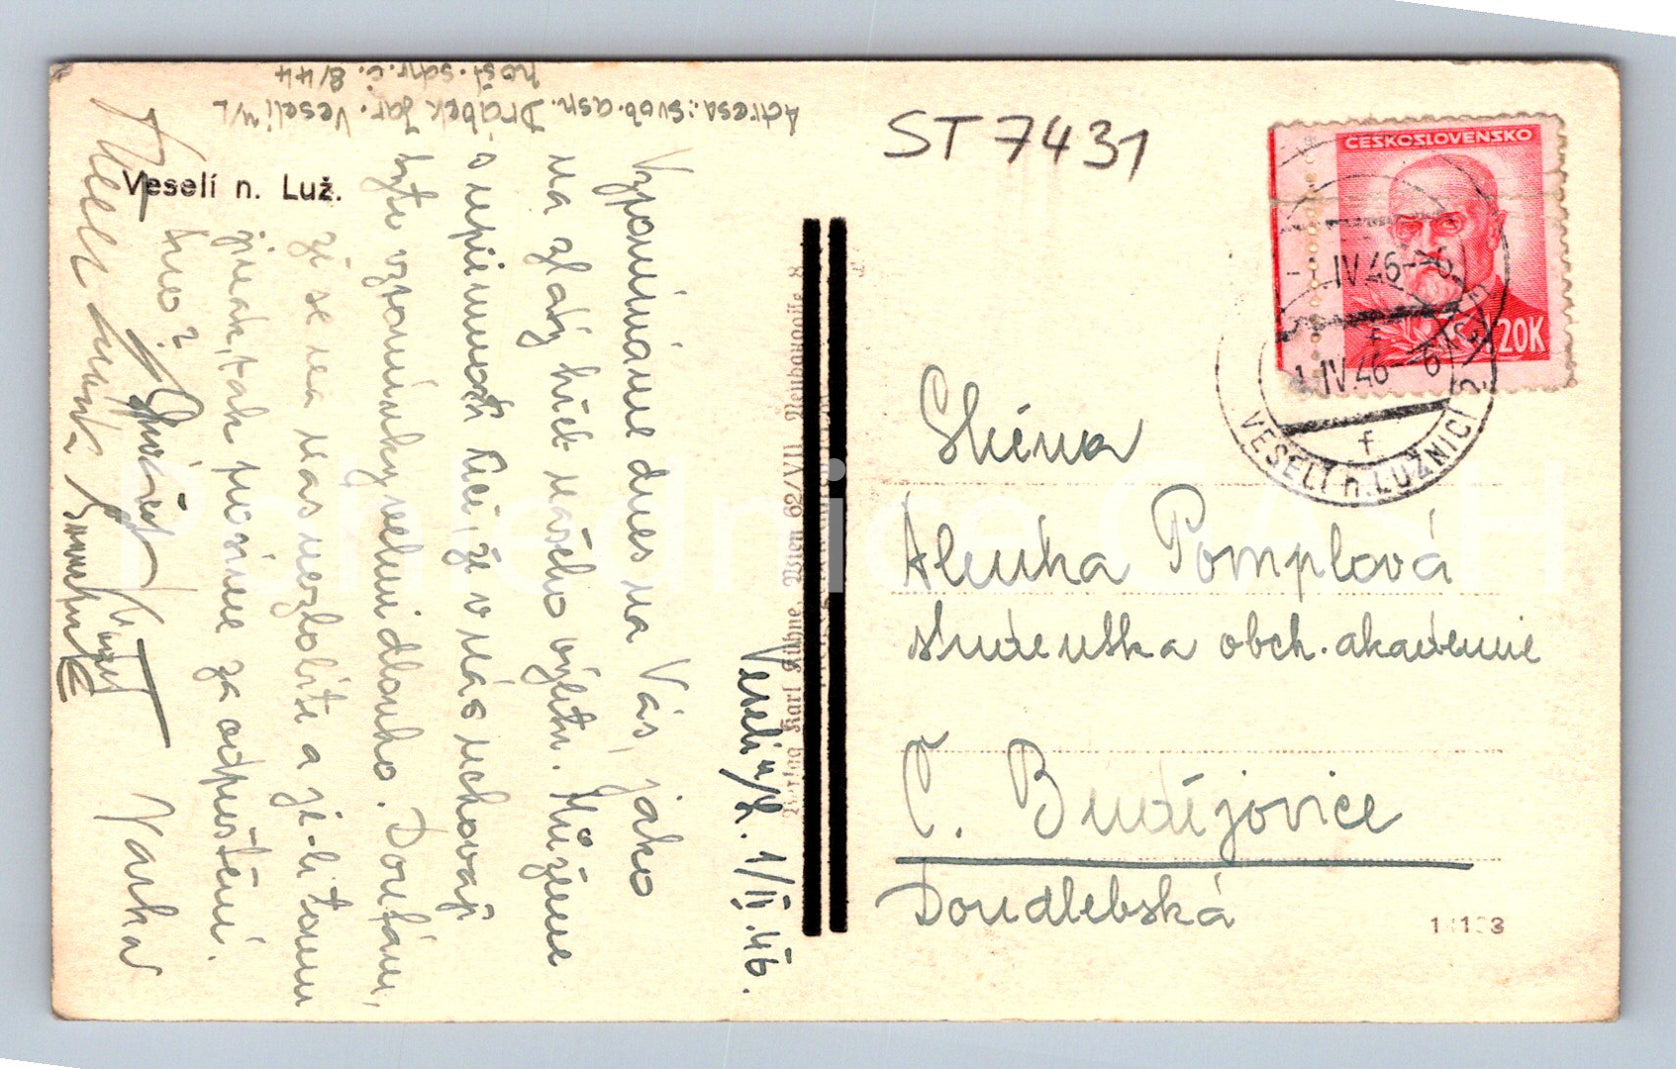 Adresa: svob. asp. Drábek Jar. Veselí n/L
pošt. schr. č. 8/44
Veselí n. Luž.
Veselí n/L. 1/IV. 46.
Vzpomínáme dnes na Vás, jako
na zlatý hřeb našeho výletu. Můžeme
s upřímností říci, že v nás uchovají
tyto vzpomínky velmi dlouho. Doufám,
že se na nás nezlobíte a je-li tomu
jinak, tak prosíme za odpuštění.
Jarka
ST 7431
ČESKOSLOVENSKO
1.20K
1.IV.46-6
1.IV.46-6
VESELÍ n. LUŽNICÍ
f
Slečna
Alenka Pomplová
studentka obch. akademie
Č. Budějovice
Doudlebská
Verlag Karl Kühne, Wien 62/VII, Neubaugasse 8
Pohlednice CASH